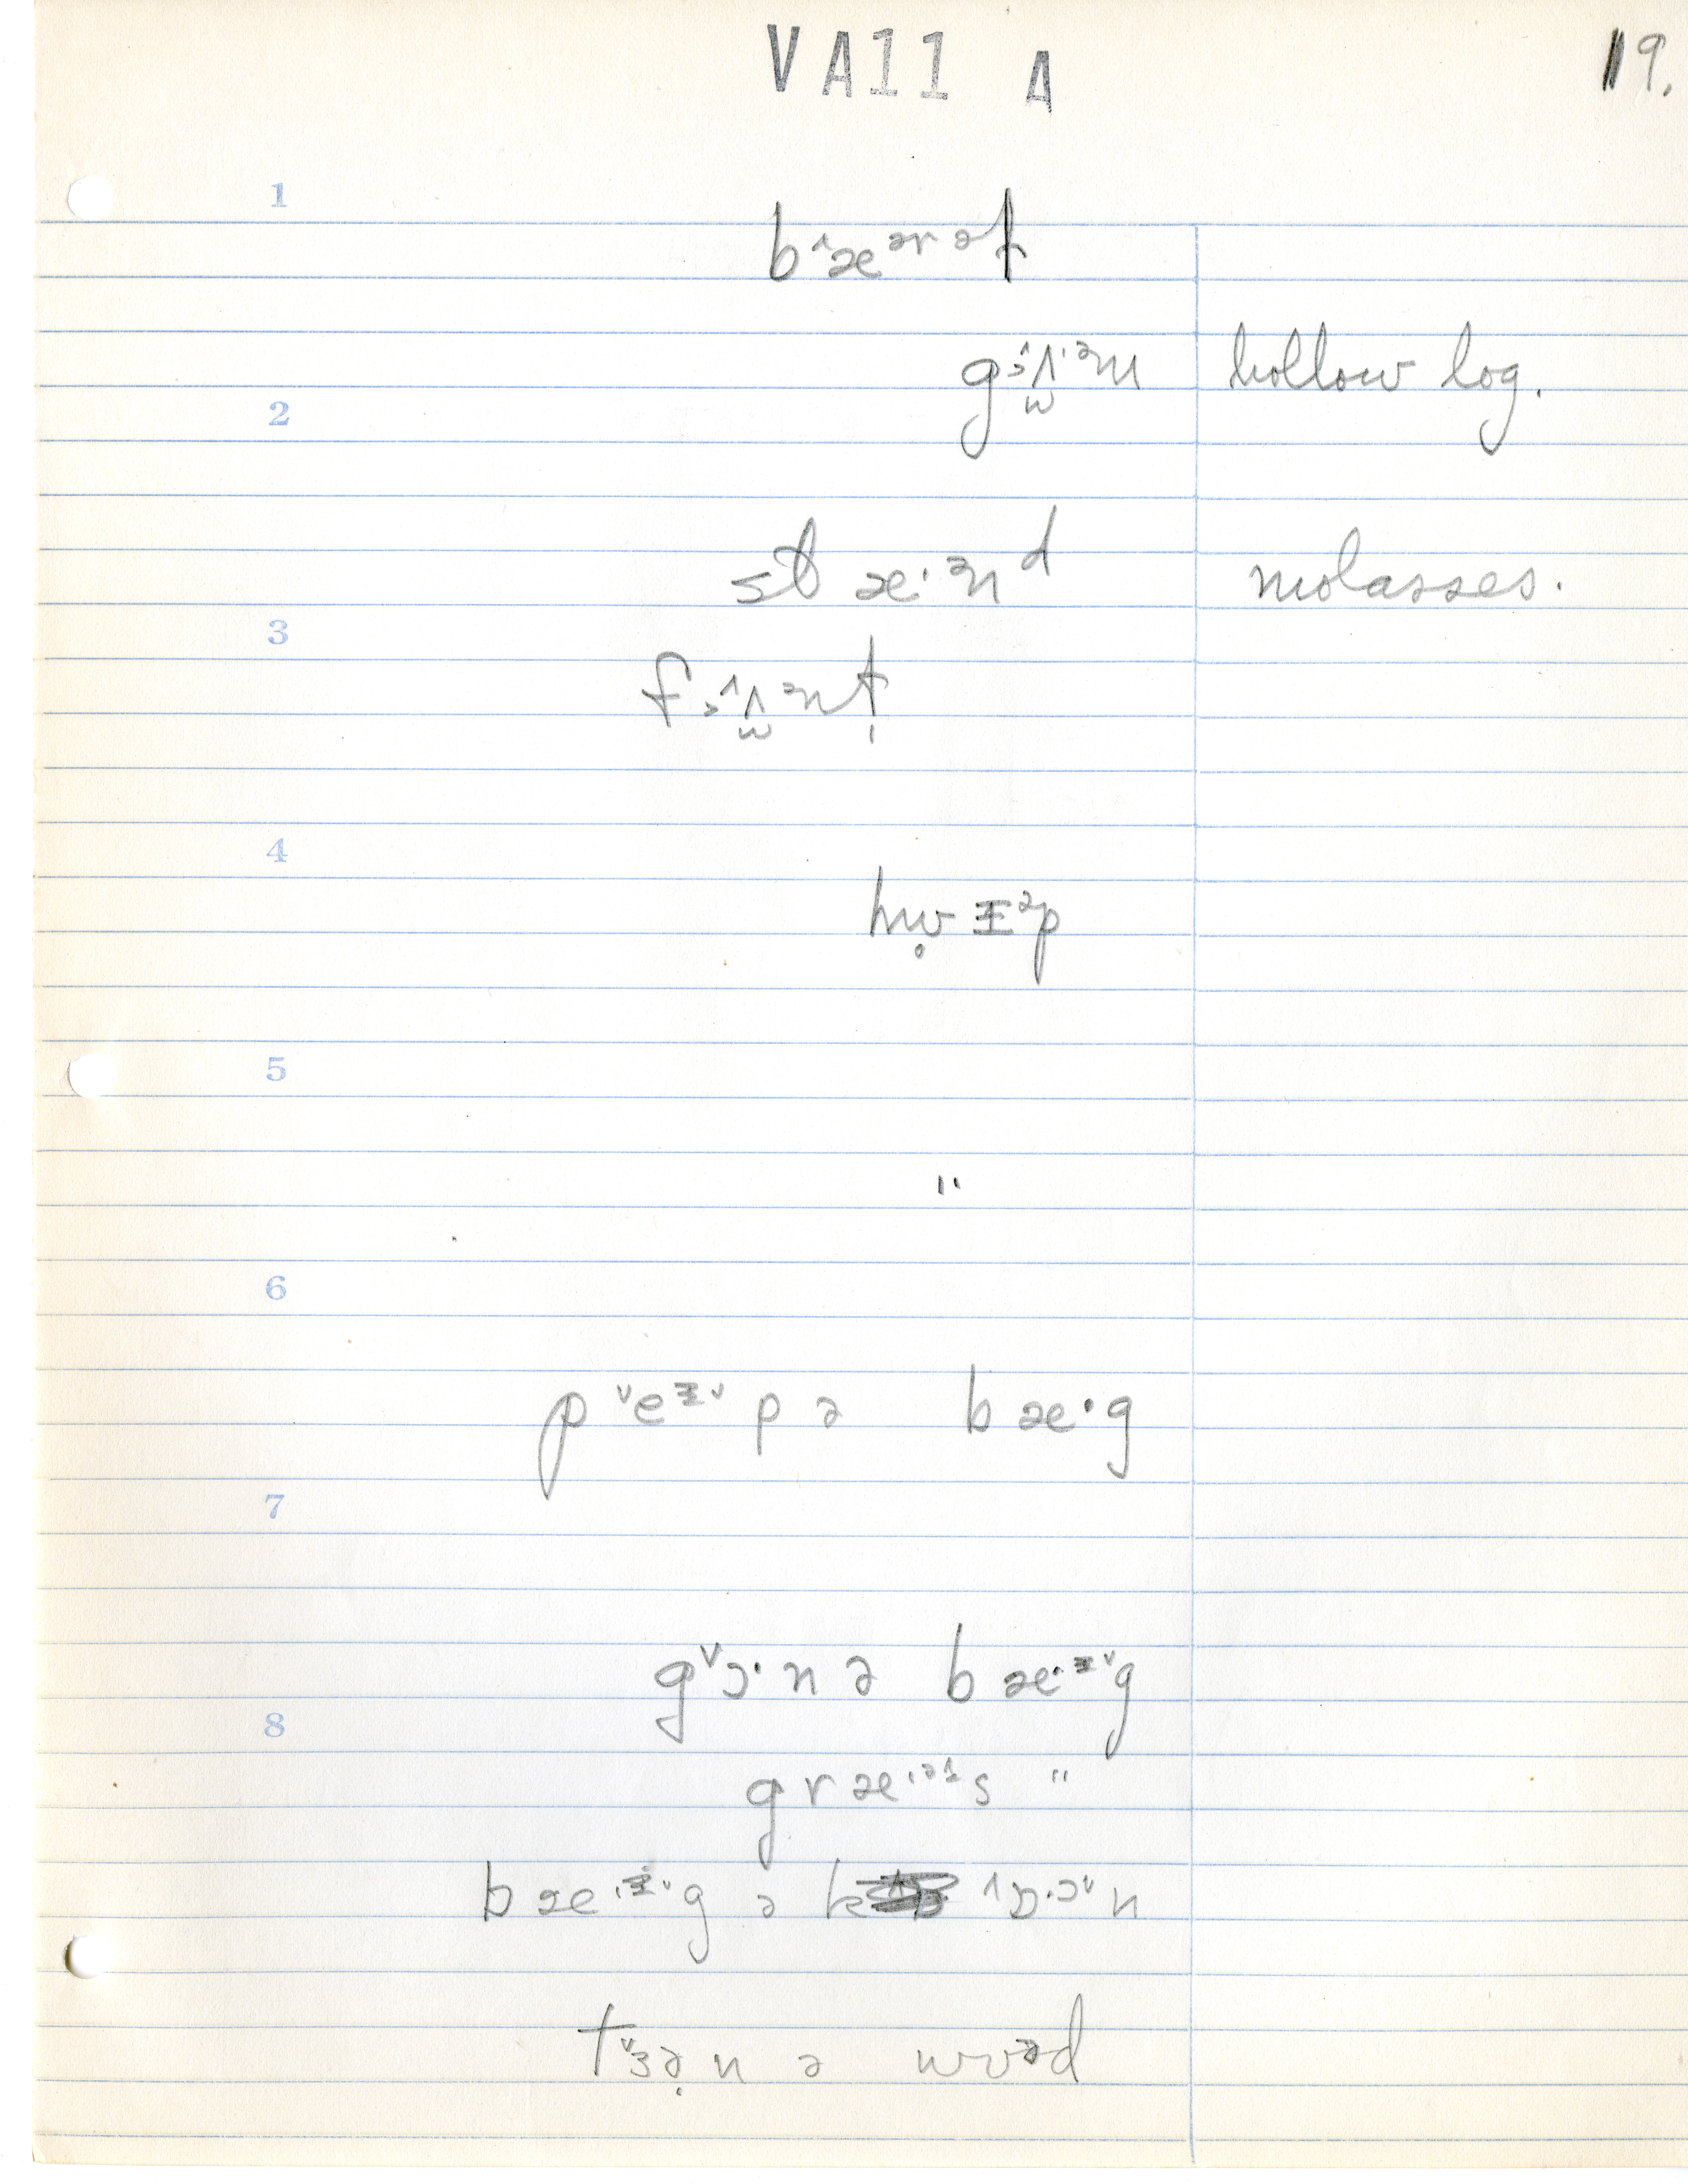 VA11 A
19.
1
b^æᵊʳəɫ
gɜ^ʌ·ᵊm hollow log.
2
st æ·ᵊnᵈ molasses.
3
fɜ^ʌᵊnt̩
4
hw̥ ɪᵊp
5
"
6
pˇeᶦˇpə bæ·g
7
gˇɔ·nə bæ·ᶦˇg
8
græ·ᵊᶦs "
bæ·ᶦˇg ə k ^ɒ·ɔˇn
tˇɜə̣n ə wʊᵊd